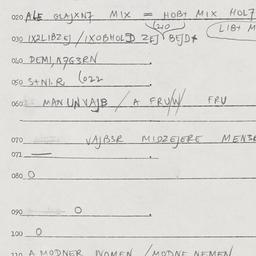 020 ALE GLAJXNƷ MIX = HOB+ MIX HOLƷ
030 IX2LIBZEJ / IXOBHOLD ZEJ BEJD+
LIB+ M
040 DEMI, NƷG3RN
050 S+NI.R (022
060 MAN UN VAJB / A FRUW FRU
070 VAJB3R MIDZEJERE MEN3R
071 —
080 O
090 O
100 O
110 A MODNER WOMEN / MODNE NEMEN